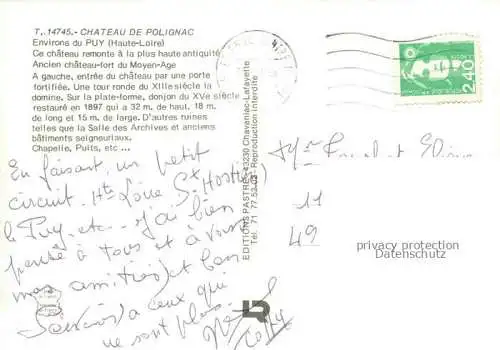 T. 14745.- CHATEAU DE POLIGNAC
Environs du PUY (Haute-Loire)
Ce château remonte à la plus haute antiquité
Ancien château-fort du Moyen-Age
A gauche, entrée du château par une porte
fortifiée. Une tour ronde du XIIIe siècle la
domine. Sur la plate-forme, donjon du XVe siècle
restauré en 1897 qui a 32 m. de haut, 18 m.
de long et 15 m. de large. D'autres ruines
telles que la Salle des Archives et anciens
bâtiments seigneuriaux.
Chapelle, Puits, etc ...
En faisant, un petit
circuit. Hte Loire St
le Puy. etc - j'ai bien
pensé à tous et à vous
mes amitiés et bon
à ceux qui
ne sont plus.
EDITIONS PASTRE - 43230 Chavaniac-Lafayette
Tél. 71 77.53.02 - Reproduction interdite
2,40
11
49
privacy protection
Datenschutz